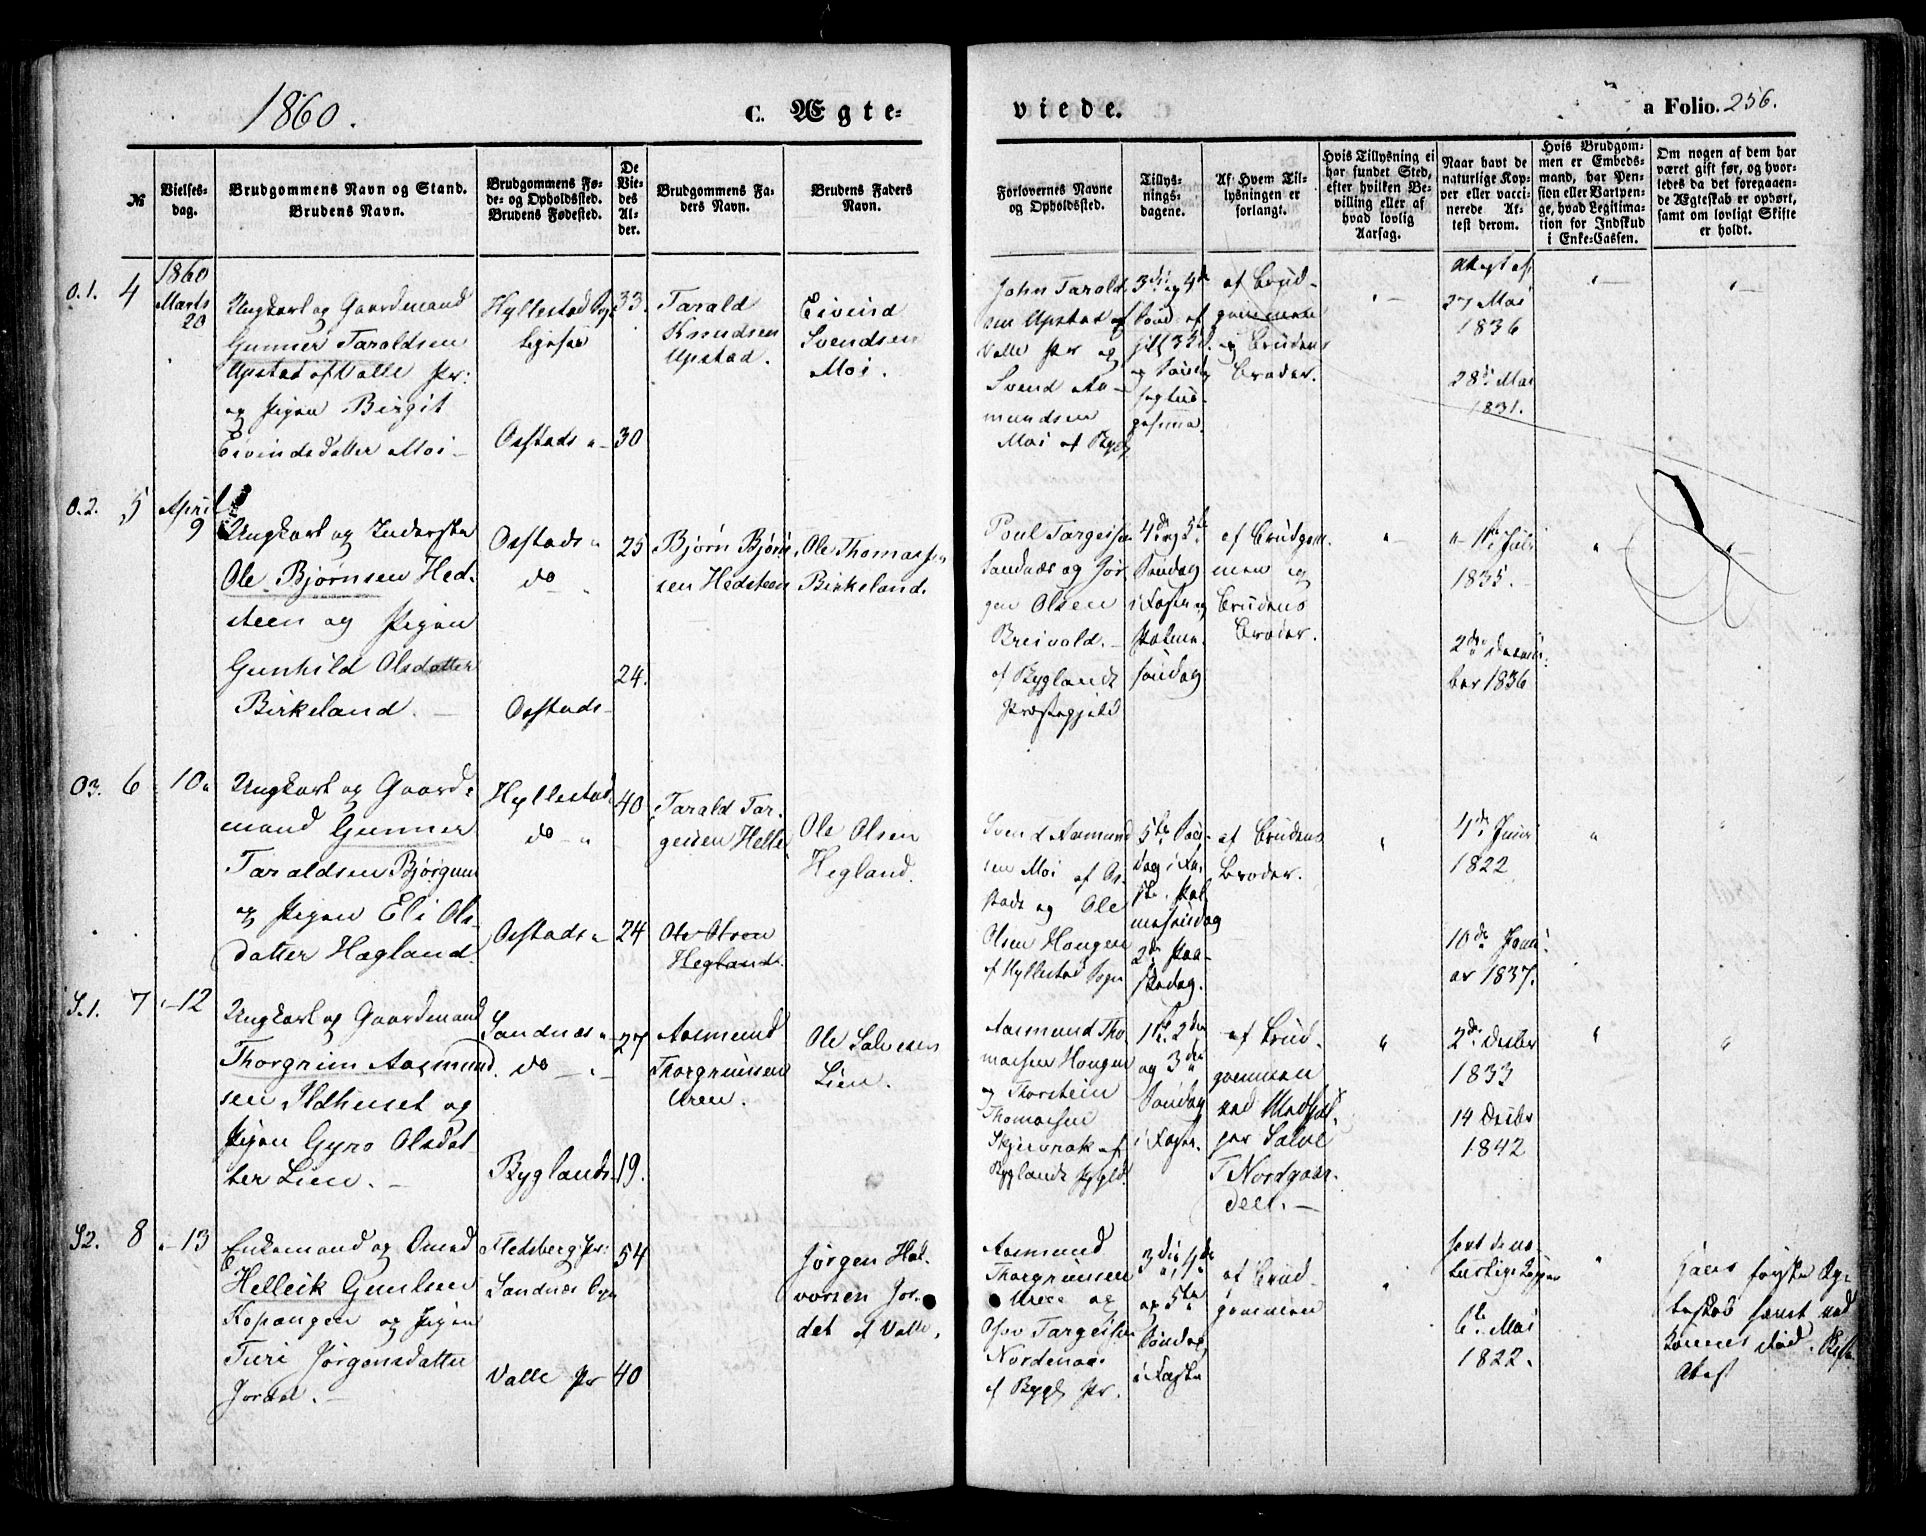 1860.
C. Ægte=
viede.
a Folio. 256.
№
Vielses-
dag.
Brudgommens Navn og Stand.
Brudens Navn.
Brudgommens Fø-
de- og Opholdssted.
Brudens Fødested.
De
Vie-
des
Al-
der.
Brudgommens Fa-
ders Navn.
Brudens Faders
Navn.
Forlovernes Navne
og Opholdssted.
Tillys-
nings-
dagene.
Af Hvem Til-
lysningen er
forlangt.
Hvis Tillysning ei
har fundet Sted,
efter hvilken Be-
villing eller af
hvad lovlig
Aarsag.
Naar havt de
naturlige Kop-
per eller vacci-
nerede At-
test derom.
Hvis Brudgom-
men er Embeds-
mand, har Pen-
sion eller Vartpen-
ge, hvad Legitima-
tion for Indskud
i Enke-Cassen.
Om nogen af dem har
været gift før, og hvor-
ledes da det foregaaen-
de Ægteskab er ophørt,
samt om lovligt Skifte
er holdt.
O.1. 4
1860
Marts
20
Ungkarl og Gaardmand
Gunner Taraldsen
Upstad af Valle Pr:
og Pigen Birgit
Eivindsdatter Moi
Hyllestad
Ostads
33.
30
Tarald
Knudsen
Upstad.
Eivind
Svendsen
Moi.
John Tarald-
sen Upstad af
Valle Pr og
Svend Aa-
mundsen
Moi af Bygl
3die og 4de
af Brud-
gommen
og Brudens
Broder.
Attest af
27 Mai
1836
28de Mai
1831.
O.2. 5
April
9
Ungkarl og Inderste
Ole Bjørnsen Hed-
steen og Pigen
Gunhild Olsdatter
Birkeland.
Ostads
do
Ostads
25
24.
Bjørn Bjørn-
sen Hedsteen
Ole Thomassen
Birkeland.
Poul Targeisen
Sandnæs og Jør-
gen Olsen
Breivold.
af Byglands
Præstegjeld
4de og 5te
Søndag
i Faste og
Palme-
søndag
af Brudgom-
men og
Brudens
Broder.
1835.
2den Decem-
ber 1836
O3. 6
10
Ungkarl og Gaard-
mand Gunner
Taraldsen Bjørgum
og Pigen Eli Ols-
datter Hægland.
Hyllestad
do
Ostads
40
24
Tarald Tar-
geisen Helle
Ole Olsen
Hegland.
Ole Olsen
Hegland.
Svend Aamund-
sen Moi af Os-
stads og Ole
Olsen Hougen
af Hyllestad Sogn
5te Søn-
dag i Fa-
ste. Pal-
mesøndag
2den Paa-
skedag.
af Brudens
Broder.
1822
10de Janu-
ar 1837.
S.1. 7
12
Ungkarl og Gaardmand
Thorgrim Aasmund-
sen Ildhuset og
Pigen Gyro Olsdat-
ter Lien.
Sandnæs
do
Byglands
27
19.
Aasmund
Thorgrimsen
Uren.
Ole Salvesen
Lien.
Aasmund Tho-
massen Hougen
og Thorstein
Thomassen
Skjevrak af
Byglands Pgjld.
1ste 2den
og 3die
Søndag
i Faste.
af Brud-
gommen
ved Medhjæl-
per Salve
T Nordgaar-
den.
2den Decbr
1833
14 Decbr
1842
S2. 8
13
Enkemand og
Helleik Gunlsen
Kopangen og Pigen
Turi Jørgensdatter
Jordet.
Flesberg Pr:
Sandnæs Sogn
Valle Pr
54
40
Jørgen Hal-
vorsen Jor-
det af Valle.
Aasmund
Thorgrimsen
Uren og
Targeisen
af Bygl. Pr.
3die, 4de
og 5te
Søndag
i Faste
af Brud-
gommen
havt de na-
turlige Kopper
6te Mai
1822.
Hans første Æg-
teskab hævet ved
Konens Død. Skifte
Attest